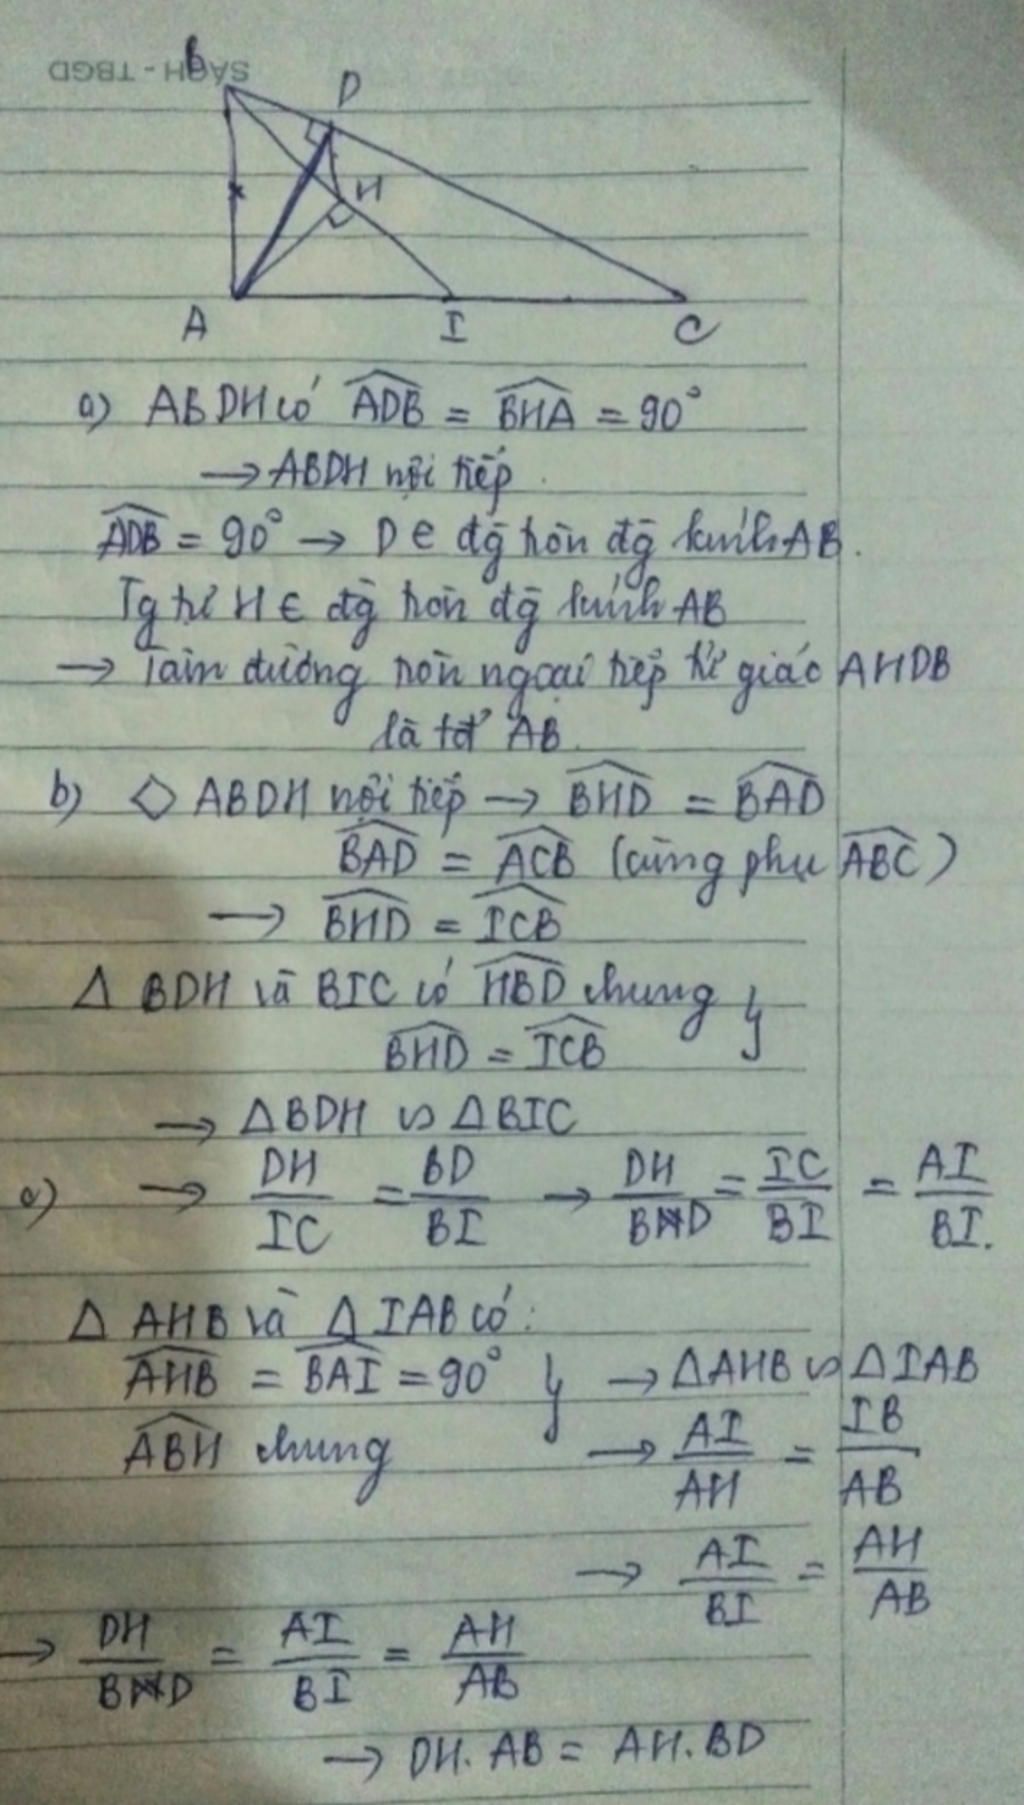 SÁCH - TBGD
B
D
H
A
I
C
a) ABDH có \widehat{ADB} = \widehat{BHA} = 90°
→ ABDH nội tiếp.
\widehat{ADB} = 90° → D ∈ đg tròn đg kính AB.
Tg tự H ∈ đg tròn đg kính AB
→ Tâm đường tròn ngoại tiếp tứ giác AHDB
là tđ AB.
b) ◇ ABDH nội tiếp → \widehat{BHD} = \widehat{BAD}
\widehat{BAD} = \widehat{ACB} (cùng phụ \widehat{ABC})
→ \widehat{BHD} = \widehat{ICB}
Δ BDH và BIC có \widehat{HBD} chung }
\widehat{BHD} = \widehat{ICB}
→ ΔBDH ∽ ΔBIC
c) → DH/IC = BD/BI → DH/BD = IC/BI = AI/BI.
Δ AHB và Δ IAB có:
\widehat{AHB} = \widehat{BAI} = 90° } → ΔAHB ∽ ΔIAB
\widehat{ABH} chung → AI/AH = IB/AB
→ AI/BI = AH/AB
→ DH/BD = AI/BI = AH/AB
→ DH. AB = AH. BD